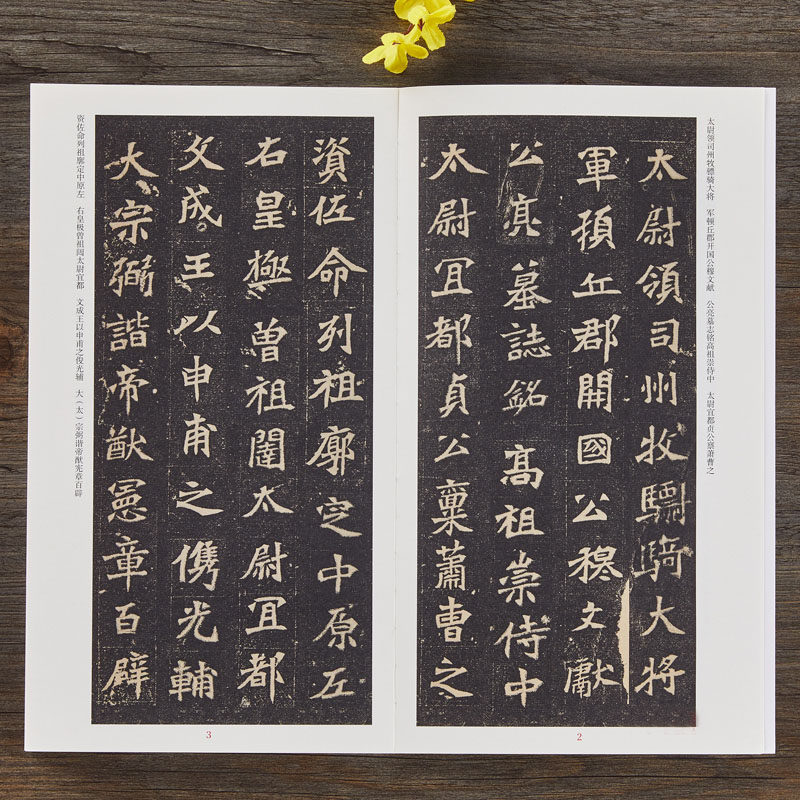 太尉领司州牧骠骑大将　军顿丘郡开国公穆文献　公亮墓志铭高祖崇侍中　太尉宜都贞公禀萧曹之
太尉領司州牧驃騎大将
軍頓丘郡開國公穆文獻
公亮墓誌銘高祖崇侍中
太尉冝都貞公稟蕭曹之
2
資佐命列祖廓定中原左
右皇極曾祖闥太尉冝都
文成王以申甫之儁光輔
大宗弼諧帝猷憲章百辟
资佐命列祖廓定中原左　右皇极曾祖闼太尉宜都　文成王以申甫之俊光辅　大（太）宗弼谐帝猷宪章百辟
3